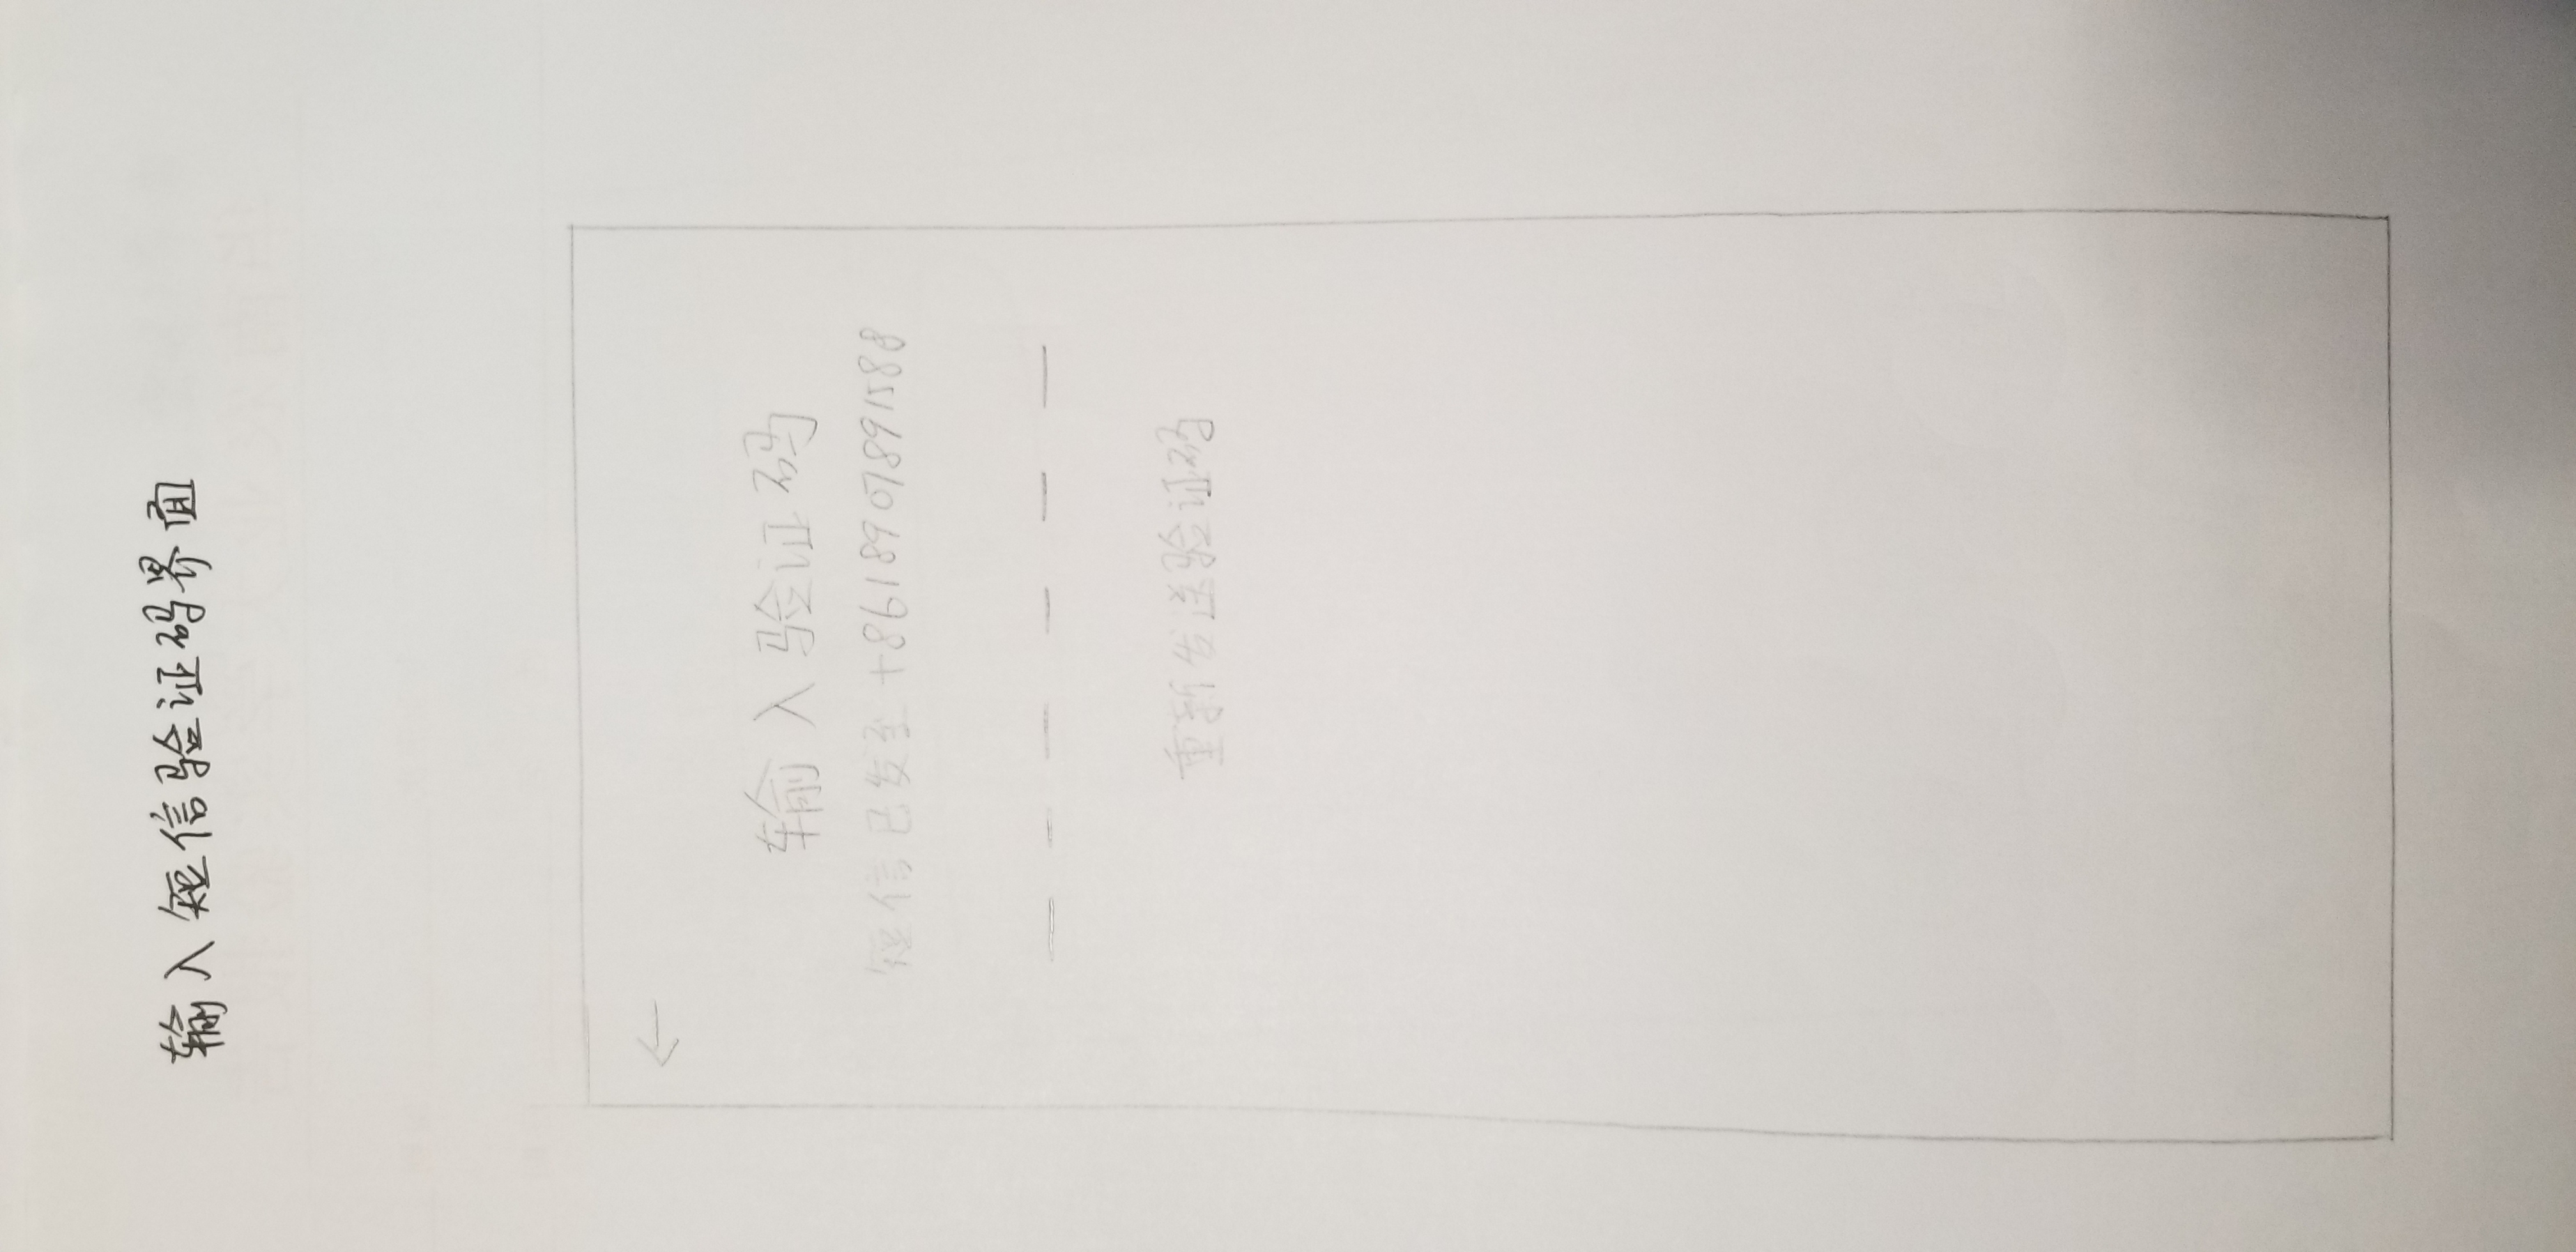 输入短信验证码界面
←
输入验证码
短信已发至 +8618907891588
重新发送验证码